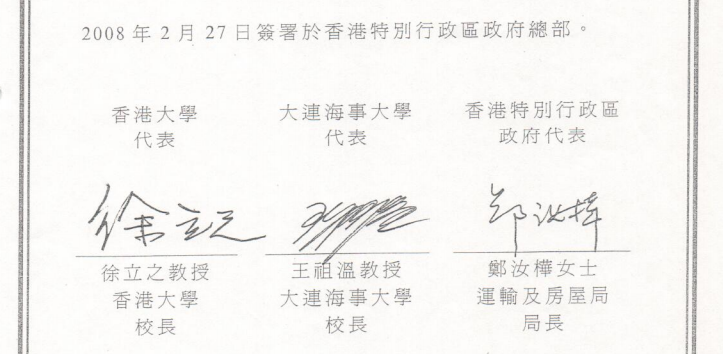 2008 年 2 月 27 日簽署於香港特別行政區政府總部。
香港大學
代表
大連海事大學
代表
香港特別行政區
政府代表
徐立之
王祖溫
鄭汝樺
徐立之教授
香港大學
校長
王祖溫教授
大連海事大學
校長
鄭汝樺女士
運輸及房屋局
局長